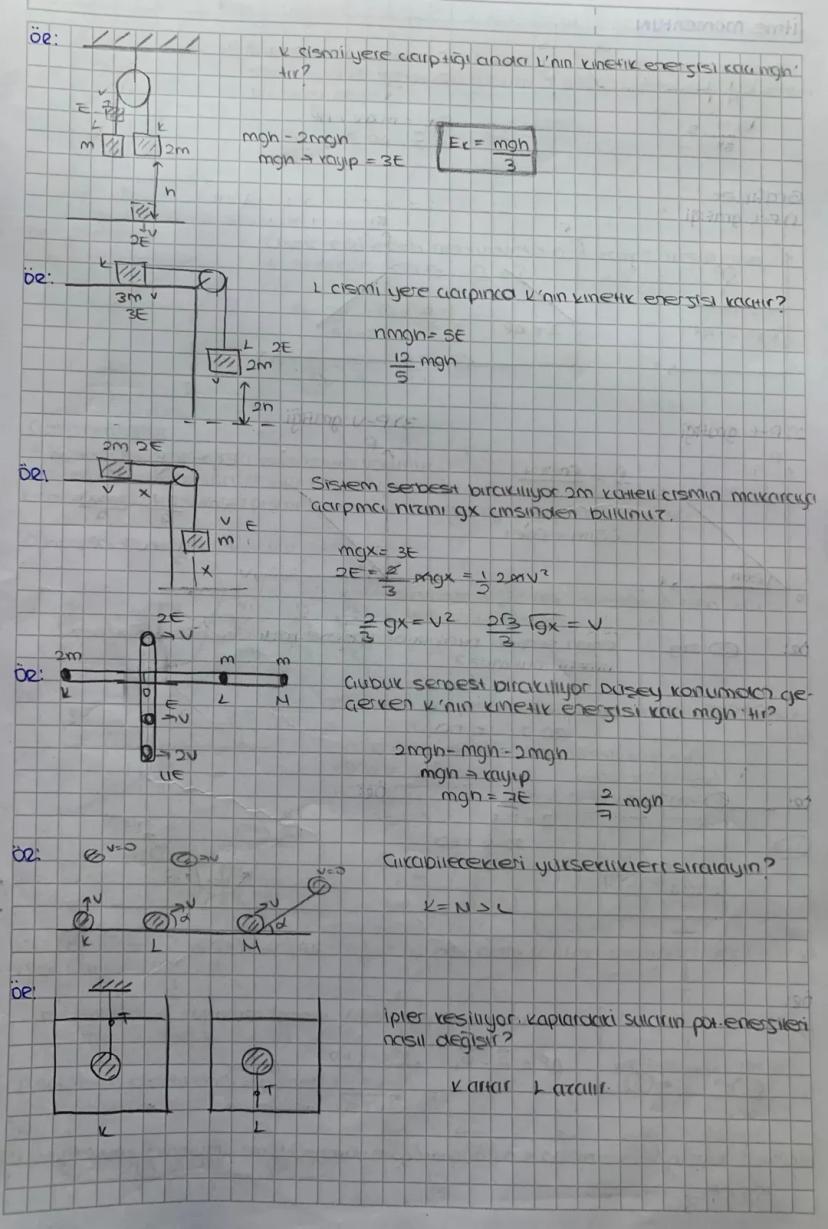 ÖR:
K cismi yere çarptığı anda L'nin kinetik enerjisi kaç mgh'
tır?
V
E
L
K
m
2m
mgh - 2mgh
mgh → kayıp = 3E
Ek = mgh/3
h
V
2E
ÖR:
K
3m V
3E
L cismi yere çarpınca K'nin kinetik enerjisi kaçtır?
L 2E
2m
V
2h
nmgh = 5E
12/5 mgh
ÖR:
2m 2E
V X
Sistem serbest bırakılıyor 2m kütleli cismin makaraya
çarpma hızını gx cinsinden bulunuz.
V E
m
X
mgx = 3E
2E = 2/3 mgx = 1/2 2mv²
2/3 gx = v² 2√3/3 √gx = v
ÖR:
2E
→V
2m
m
m
K
O
L
M
E
→V
→2V
4E
Çubuk serbest bırakılıyor Düşey konumdan ge-
çerken K'nin kinetik enerjisi kaç mgh'tır?
2mgh - mgh - 2mgh
mgh → kayıp
mgh = 7E 2/7 mgh
ÖR:
V=0
→V
V=0
V
V
α
V
α
K
L
M
Çıkabilecekleri yükseklikleri sıralayın?
K=M>L
ÖR:
T
T
K
L
İpler kesiliyor. Kaplardaki suların pot. enerjileri
nasıl değişir?
K artar L azalır.